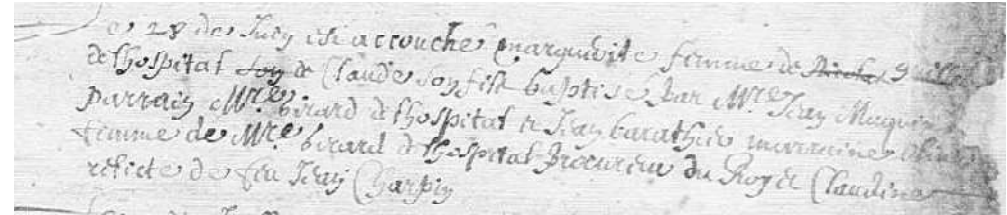 e 28 de Juin est accouché marguerite femme de
de lhospital de Claude son fils baptisé par Mre Jean
parrain Mre birard de lhospital et Jean barathier marraine
femme de Mre birard de lhospital procureur du Roy et Claudine
relicte de feu Jean Charpin